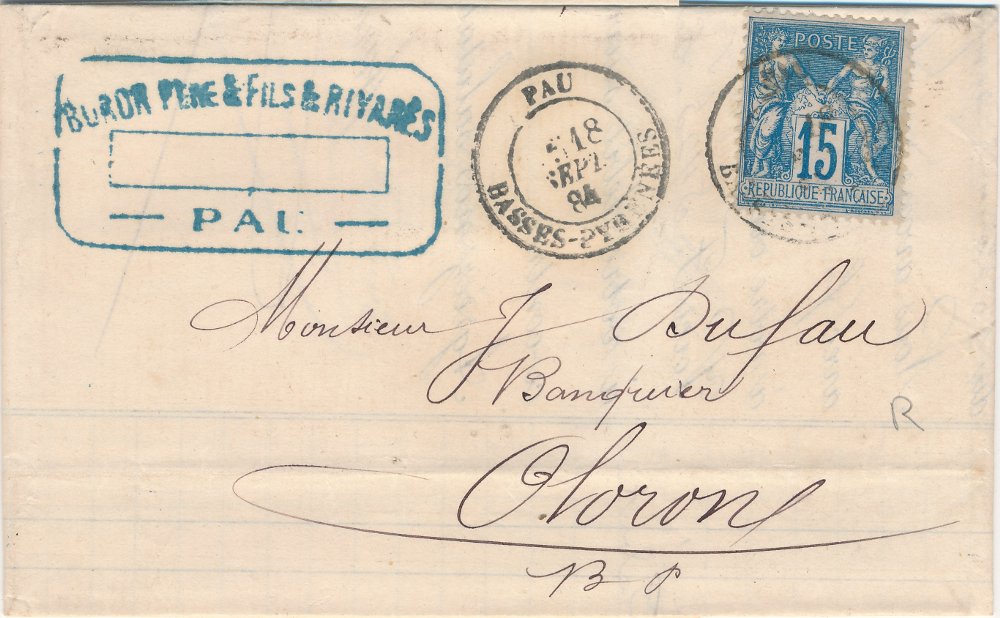 BURON PÈRE & FILS & RIVARÈS
PAU
PAU
18
SEPT.
84
BASSES-PYRENEES
POSTE
15
REPUBLIQUE FRANÇAISE
Monsieur J Dufau
Banquier
Oloron
B P
R